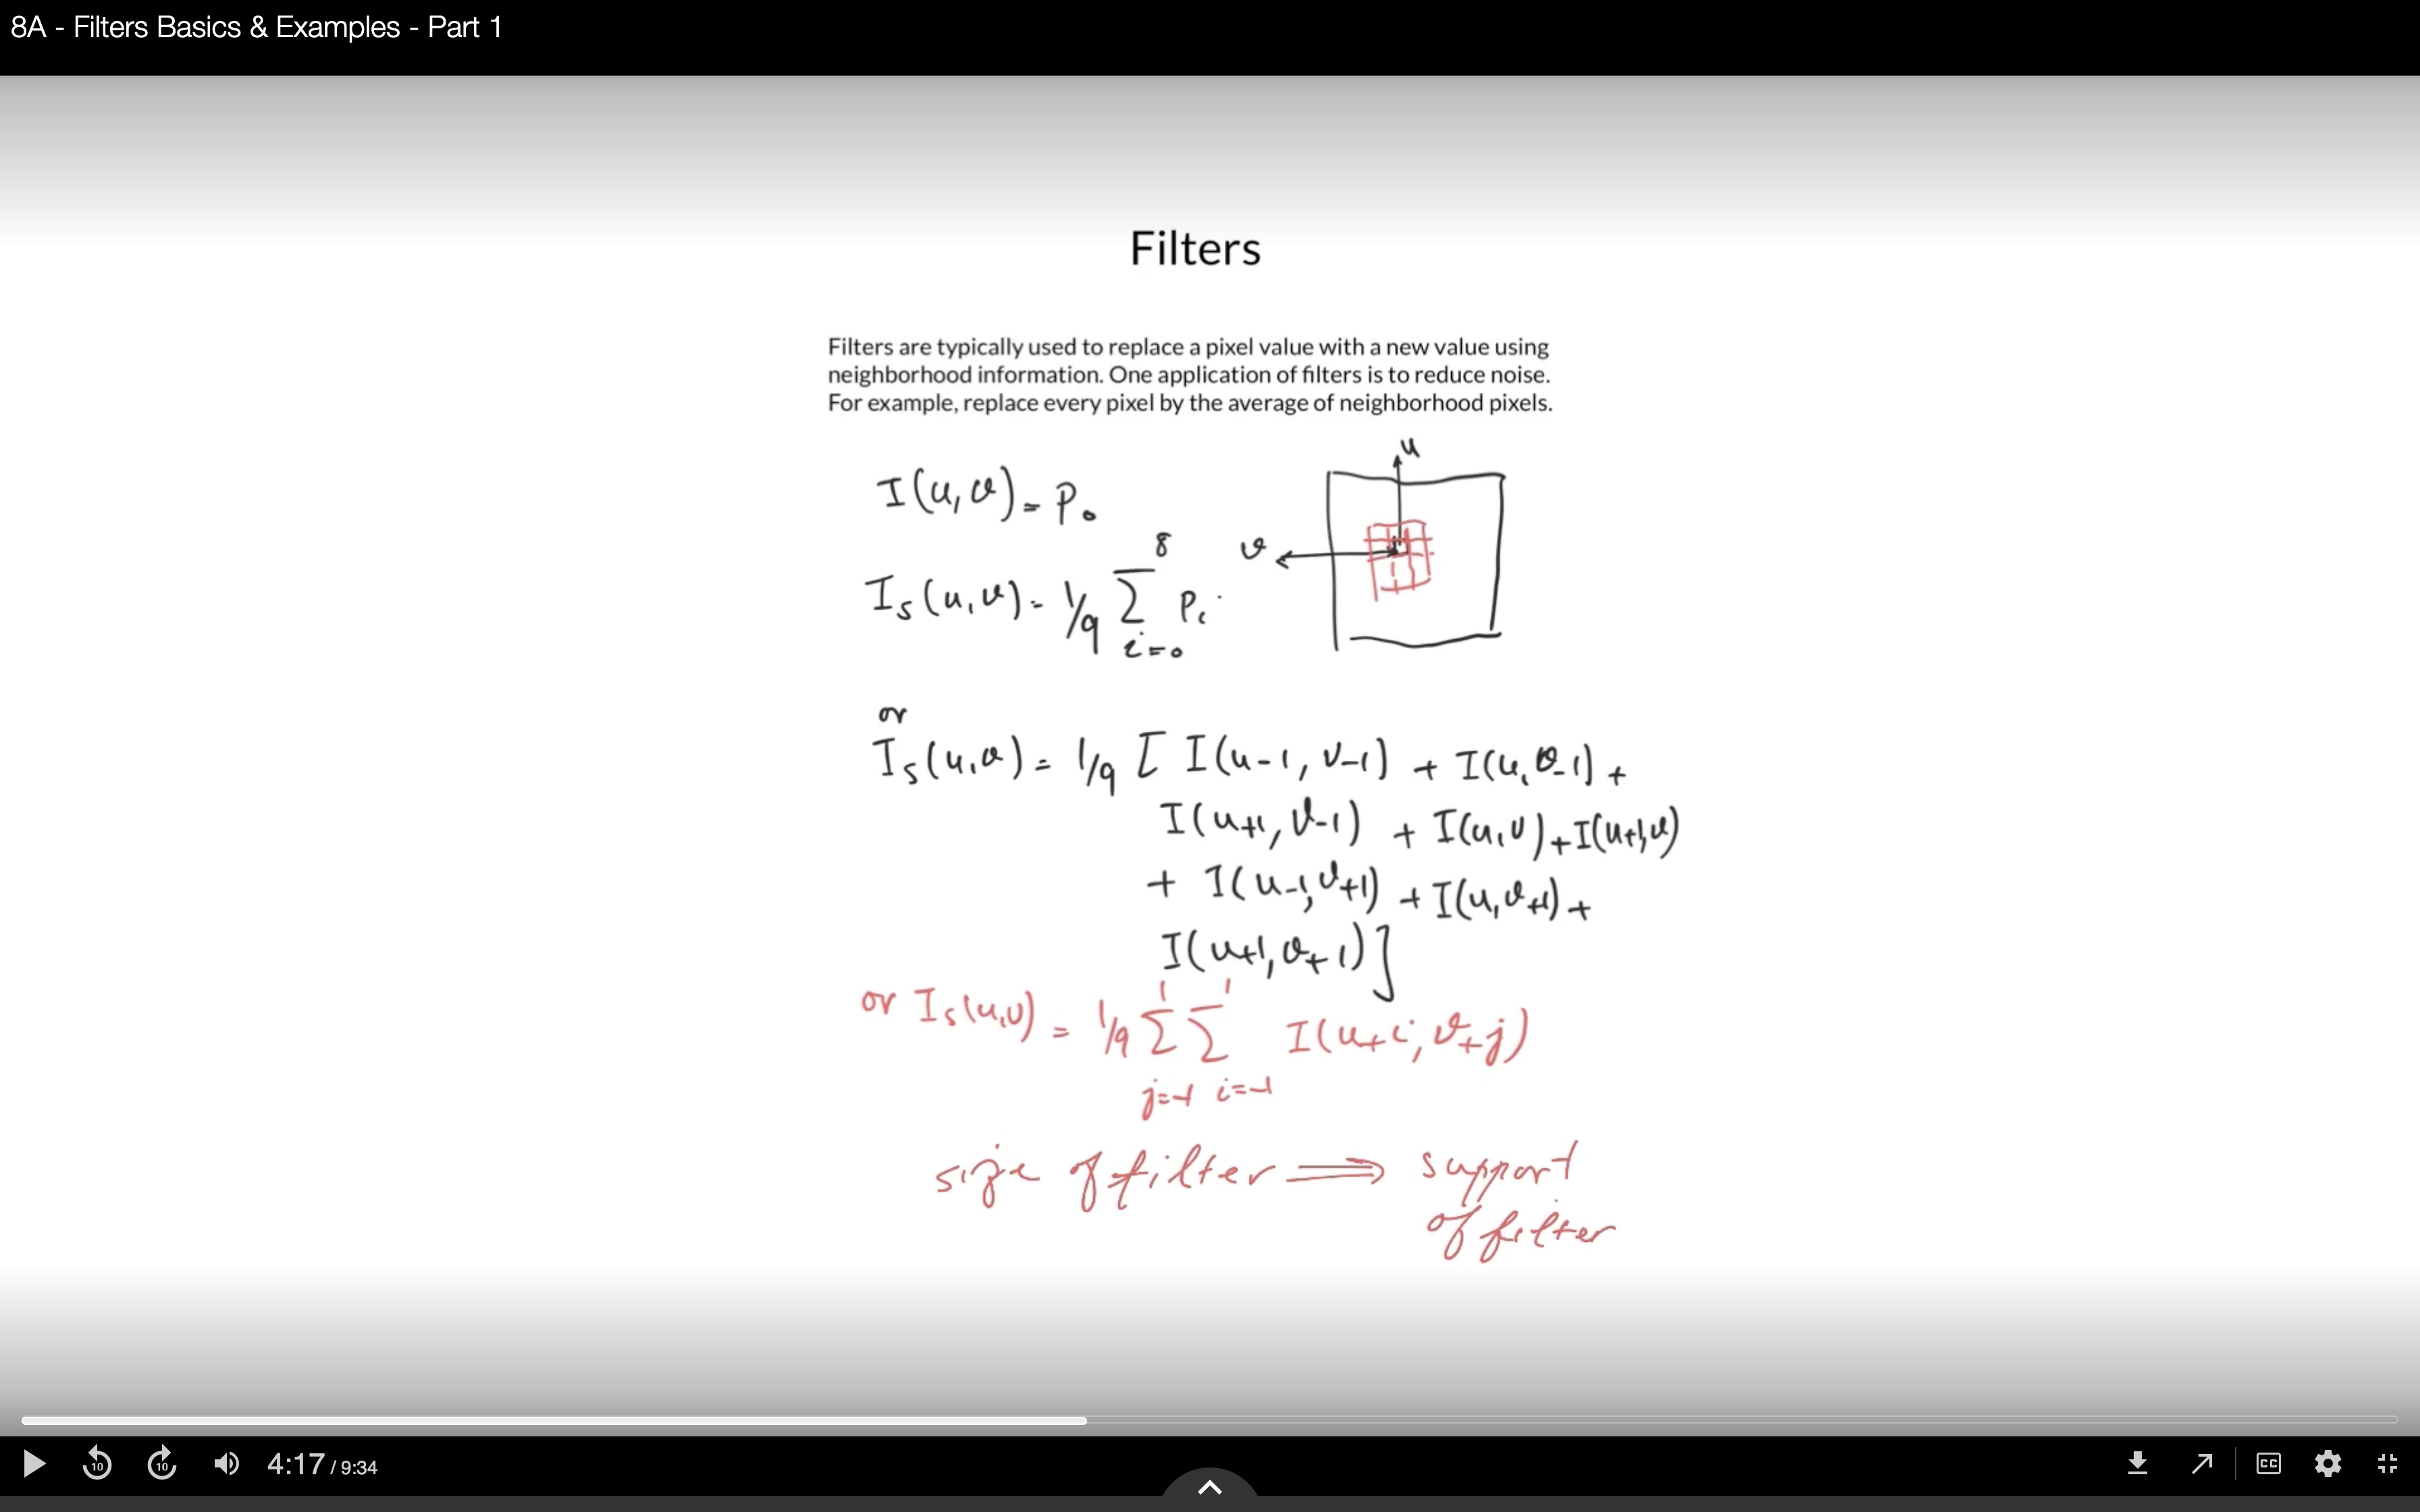 8A - Filters Basics & Examples - Part 1
Filters
Filters are typically used to replace a pixel value with a new value using
neighborhood information. One application of filters is to reduce noise.
For example, replace every pixel by the average of neighborhood pixels.
u
I(u,v) = P0
v
8
Is(u,v) = 1/9 Σ Pi
i=0
or
Is(u,v) = 1/9 [ I(u-1, v-1) + I(u, v-1) +
I(u+1, v-1) + I(u,v) + I(u+1,v)
+ I(u-1, v+1) + I(u, v+1) +
I(u+1, v+1) ]
1 1
or Is(u,v) = 1/9 Σ Σ I(u+i, v+j)
j=-1 i=-1
size of filter ⟹ support
of filter
10 10 4:17 / 9:34 CC